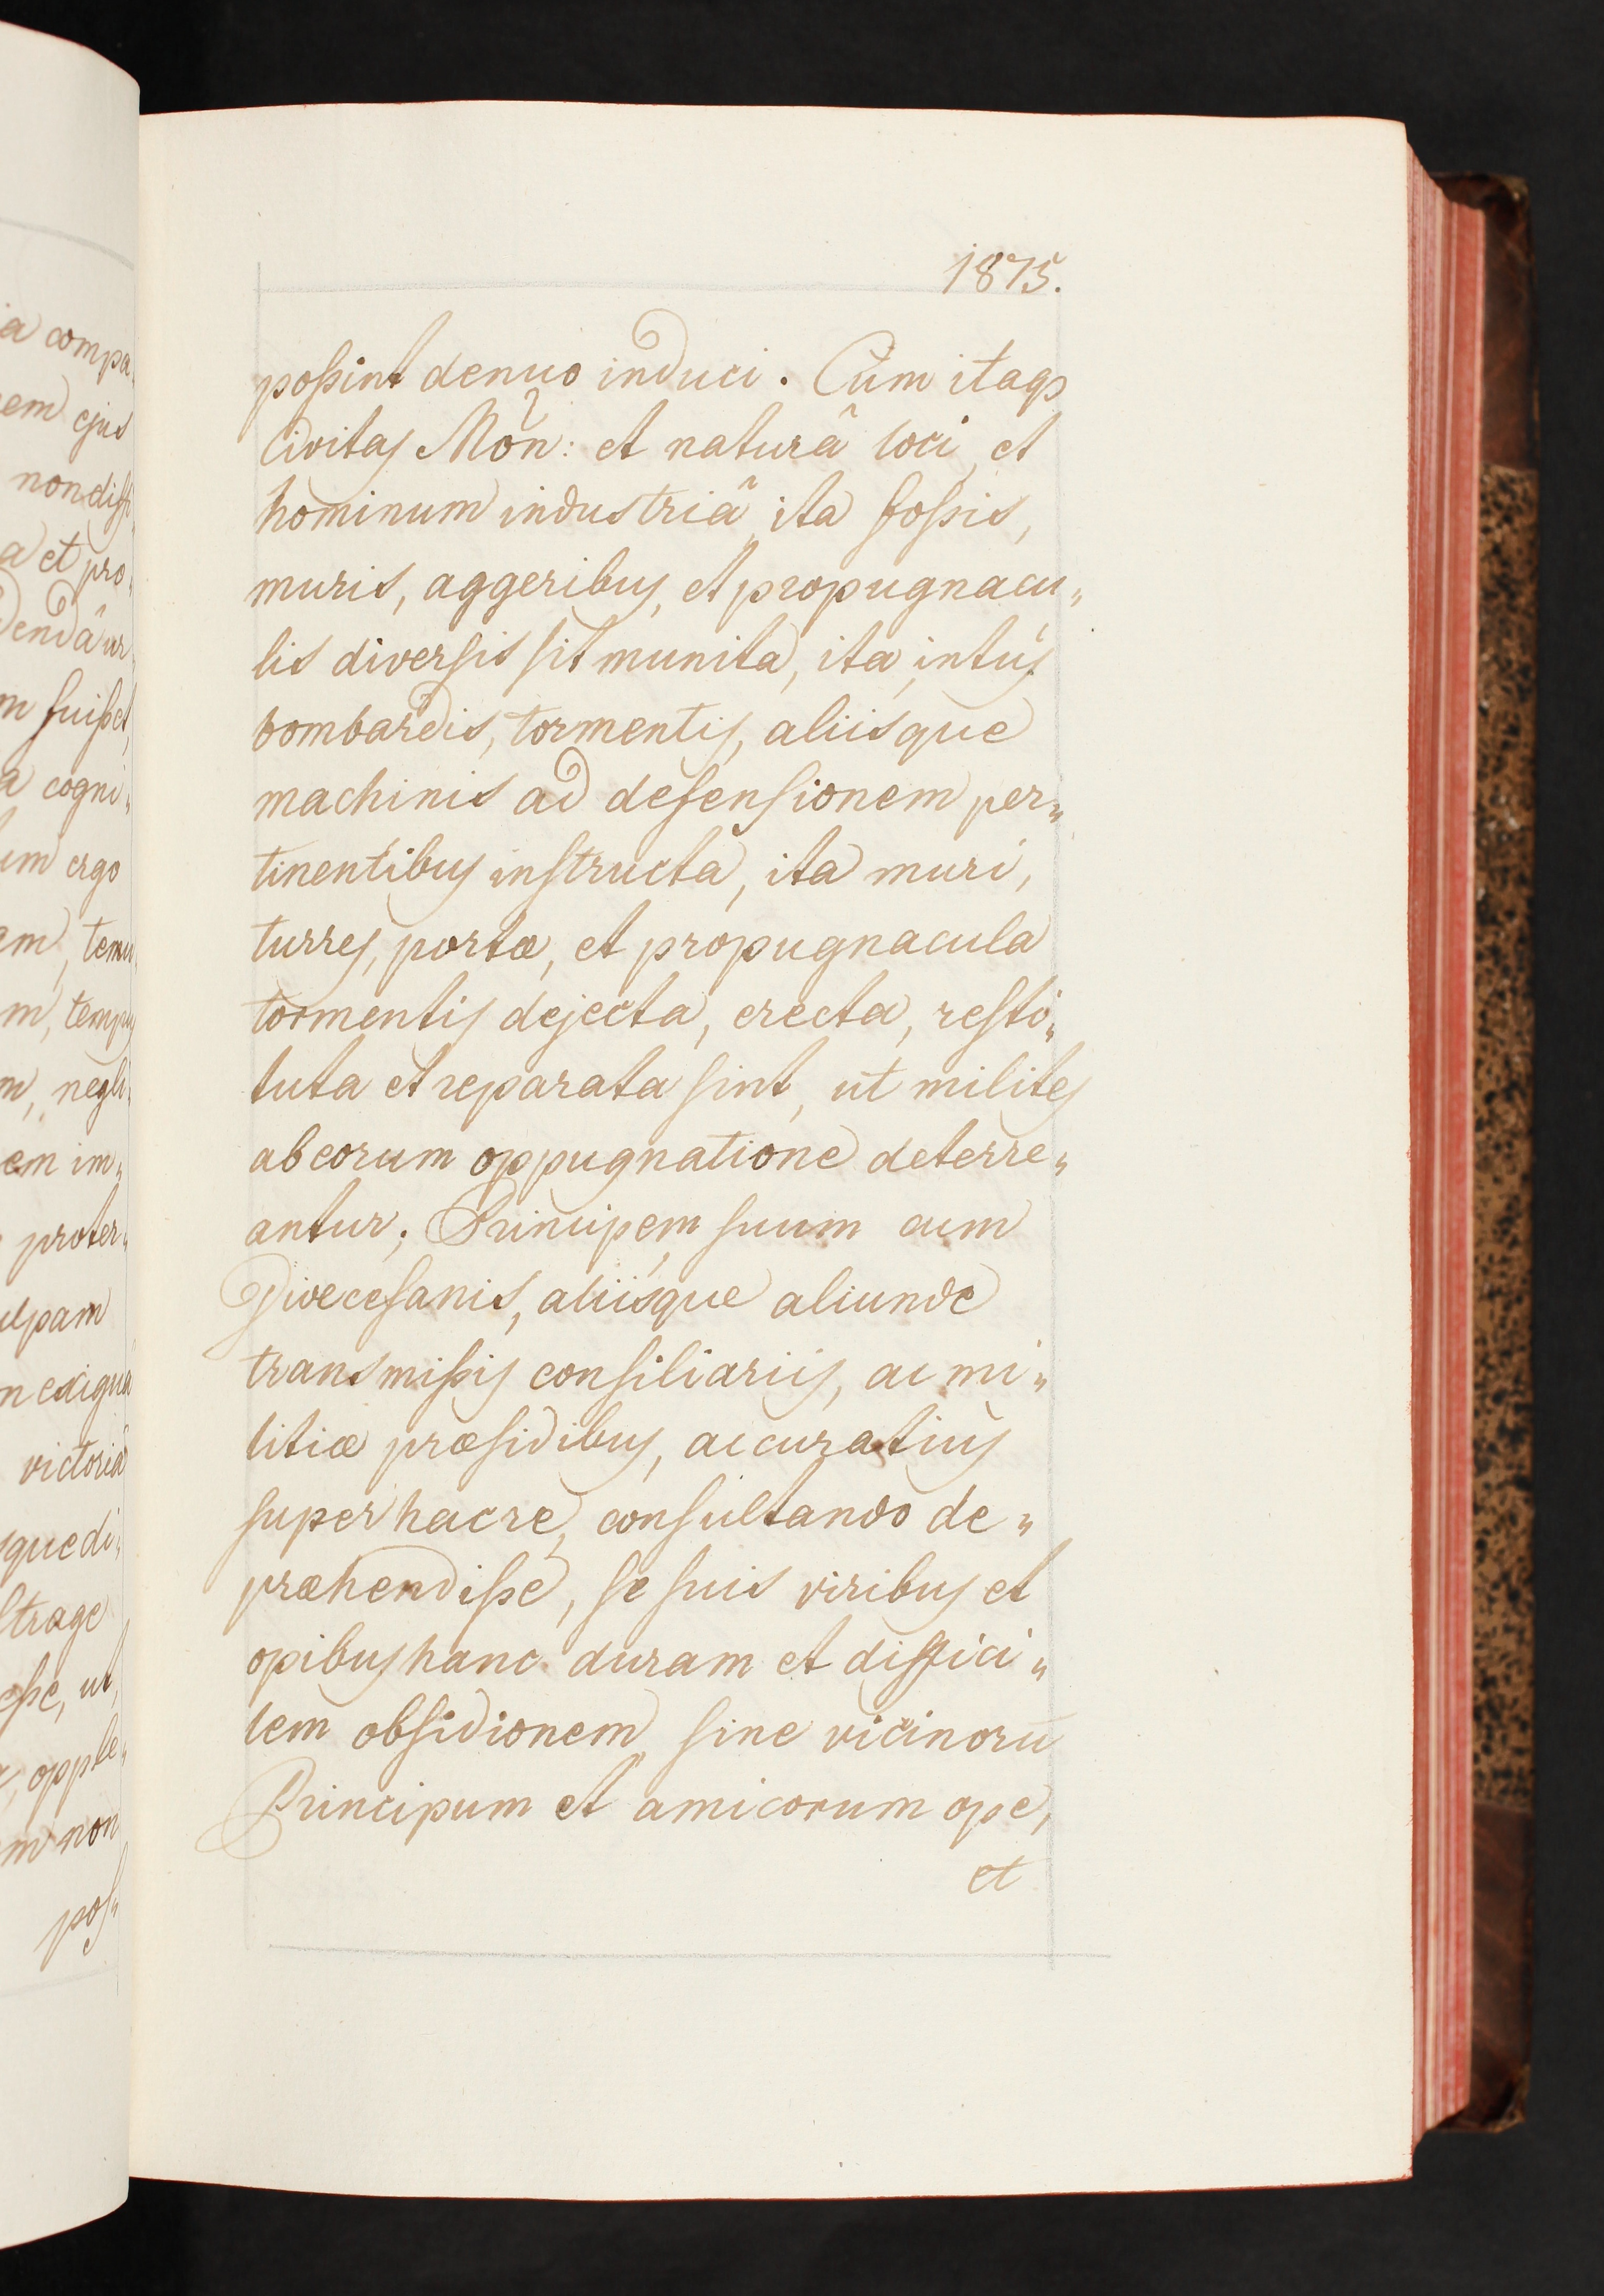 a compa„
em ejus
non diffi„
a et pro„
dendâ ur„
m fuißet,
a cogni„
um ergo
am, temu„
m, tempus
m, negli„
em im„
proter„
ulpam
n exigua
victoria
sque di„
strage
eße, ut
opple„
m non
pos„
1875.
poßint denuo induci. Cùm itaqꝫ
Civitas Mon̄: et naturâ loci, et
hominum industriâ, ita foßis,
muris, aggeribus, et propugnacu„
lis diversis sit munita, ita, intùs
bombardis, tormentis, aliisque
machinis ad defensionem per„
tinentibus instructa, ita muri,
turres, portæ, et propugnacula
tormentis dejecta, erecta, resti„
tuta et reparata sint, ut milites
ab eorum oppugnatione deterre„
antur; Principem suum cum
Dioecesanis, aliisque aliunde
transmißis consiliariis, ac mi„
litiæ præsidibus, accuratius
super hac re, consultando de„
præhendiße, se suis viribus et
opibus hanc duram et diffici„
lem obsidionem, sine vicinorū
Principum et amicorum ope,
et